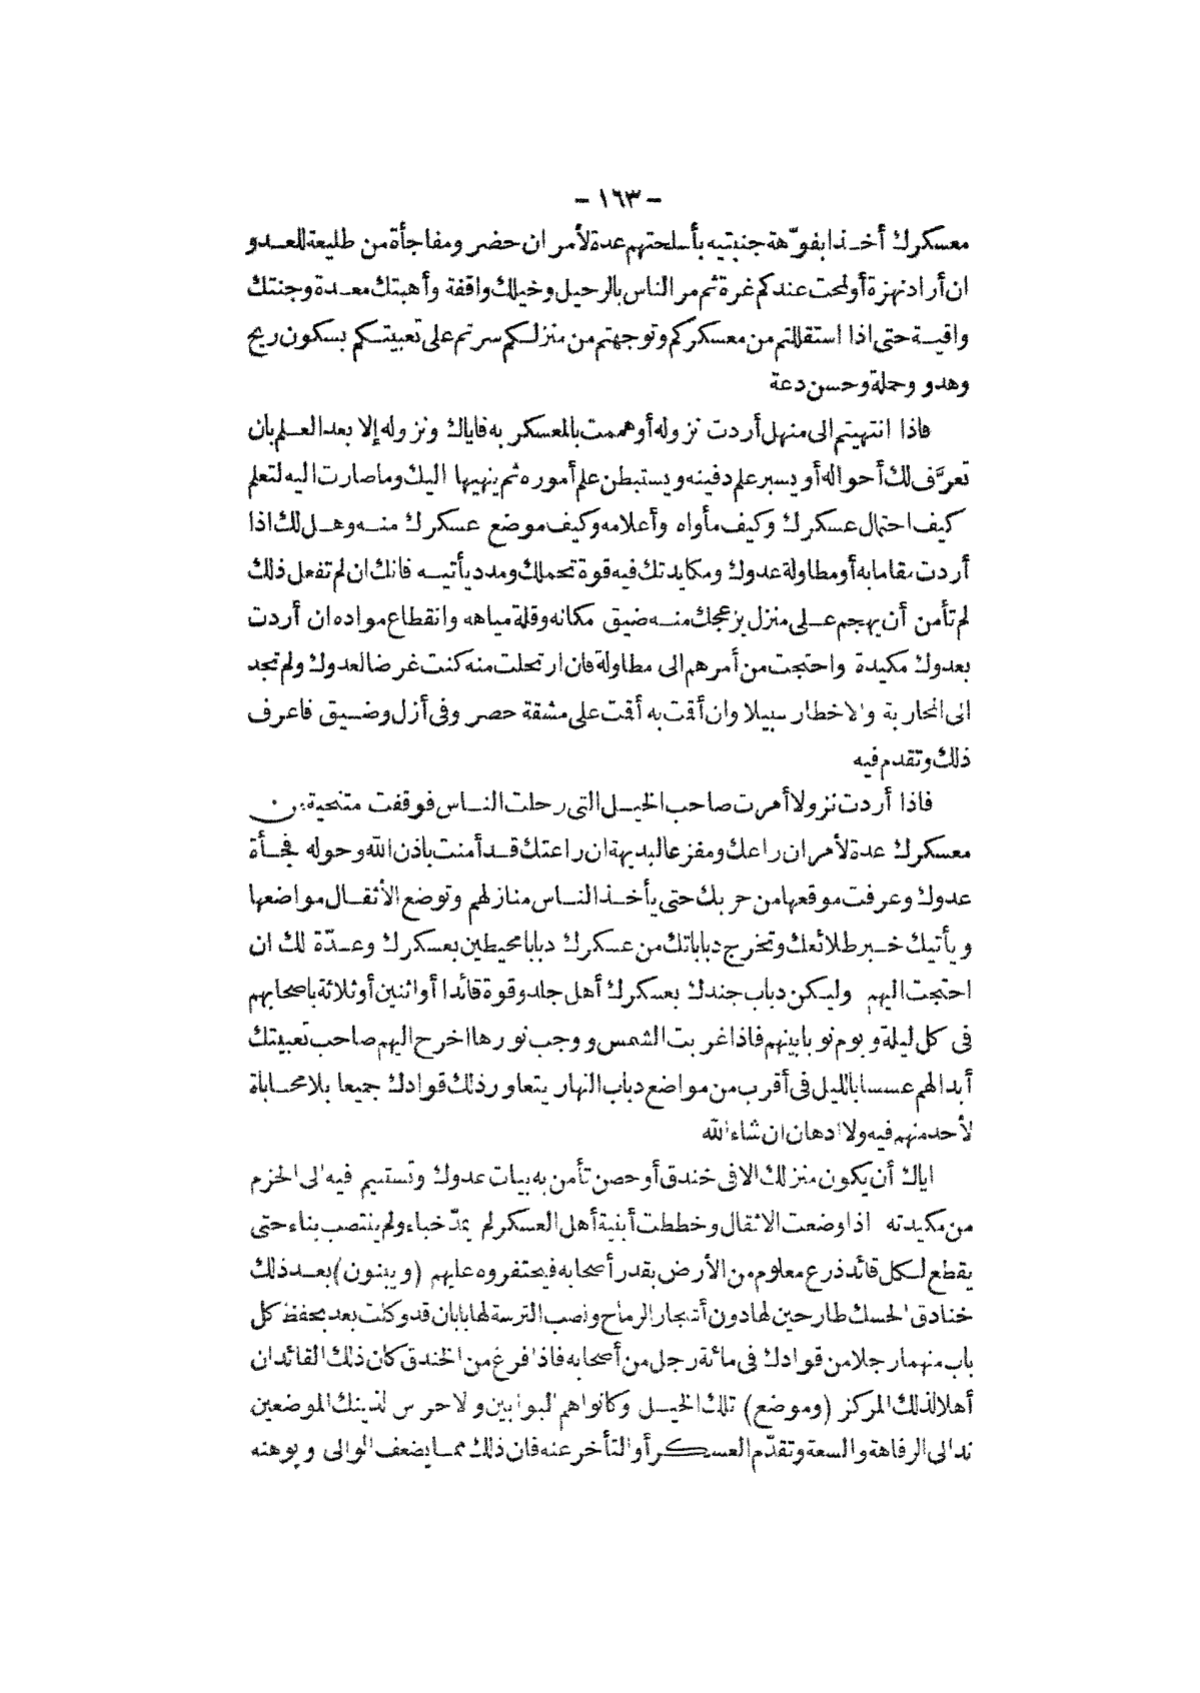 - ١٦٣ -
معسكرك أخذا بفوّهة جنبتيه بأسلحتهم عدة لأمر ان حضر ومفاجأة من طليعة للعدو
ان أراد نهزة أو لمحت عندكم غرة ثم مر الناس بالرحيل وخيلك واقفة وأهبتك معدة وجنتك
واقية حتى اذا استقللتم من معسكركم وتوجهتم من منزلكم سرتم على تعبيتكم بسكون ريح
وهدو وحملة وحسن دعة
فاذا انتهيتم الى منهل أردت نزوله أو هممت بالمعسكر به فاياك ونزوله إلا بعد العلم بان
تعرَّف لك أحواله أو يسبر علم دفينه ويستبطن علم أموره ثم ينهيها اليك وما صارت اليه لتعلم
كيف احتمال عسكرك وكيف مأواه وأعلامه وكيف موضع عسكرك منه وهل لك اذا
أردت مقاما به أو مطاولة عدوك ومكايدتك فيه قوة تحملك ومدد يأتيه فانك ان لم تفعل ذلك
لم تأمن أن يهجم على منزل يزعجك منه ضيق مكانه وقلة مياهه وانقطاع مواده ان أردت
بعدوك مكيدة واحتجت من أمرهم الى مطاولة فان ارتحلت منه كنت غرضا لعدوك ولم تجد
الى المحاربة والاخطار سبيلا وان أقمت به أقمت على مشقة حصر وفى أزل وضيق فاعرف
ذلك وتقدم فيه
فاذا أردت نزولا أمرت صاحب الخيل التى رحلت الناس فوقفت متنحية من
معسكرك عدة لأمر ان راعك ومفزعا لبديهة ان راعتك قد أمنت باذن الله وحوله فجأة
عدوك وعرفت موقعها من حربك حتى يأخذ الناس منازلهم وتوضع الأثقال مواضعها
ويأتيك خبر طلائعك وتخرج دباباتك من عسكرك دبابا محيطين بعسكرك وعدّة لك ان
احتجت اليهم وليكن دباب جندك بعسكرك أهل جلد وقوة قائدا أو اثنين أو ثلاثة باصحابهم
فى كل ليلة ويوم نوبا بينهم فاذا غربت الشمس ووجب نورها اخرج اليهم صاحب تعبيتك
أبدالهم عسسا بالليل فى أقرب من مواضع دباب النهار يتعاور ذلك قوادك جميعا بلا محاباة
لأحد منهم فيه ولا ادهان ان شاء الله
اياك أن يكون منزلك الا فى خندق أو حصن تأمن به بيات عدوك وتستنيم فيه الى الحزم
من مكيدته اذا وضعت الاثقال وخططت أبنية أهل العسكر لم يمدّ خباء ولم ينتصب بناء حتى
يقطع لكل قائد ذرع معلوم من الأرض بقدر أصحابه فيحتفروه عليهم (ويبنون) بعد ذلك
خنادق الحسك طارحين لها دون أشجار الرماح ونصب الترسة لها بابان قد وكلت بعد بحفظ كل
باب منهما رجلا من قوادك فى مائة رجل من أصحابه فاذا فرغ من الخندق كان ذلك القائدان
أهلا لذلك المركز (وموضع) تلك الخيل وكانوا هم البوابين والاحرس لذينك الموضعين
ند الى الرفاهة والسعة وتقدّم العسكر أو التأخر عنه فان ذلك مما يضعف الوالى ويوهنه